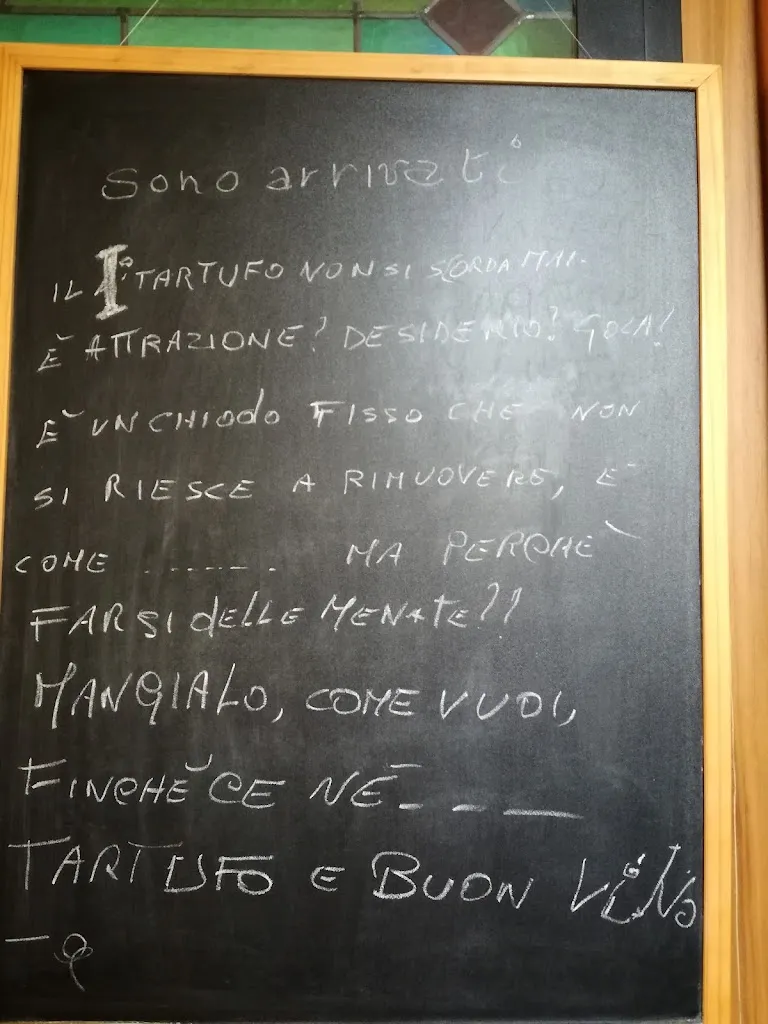 sono arrivati
IL 1° TARTUFO NON SI SCORDA MAI.
È ATTRAZIONE? DESIDERIO? GOLA?
E' UN CHIODO FISSO CHE NON
SI RIESCE A RIMUOVERE, E'
COME ....... MA PERCHÈ
FARSI DELLE MENATE??
MANGIALO, COME VUOI,
FINCHÈ CE NÉ _ _ _
TARTUFO E BUON VINO